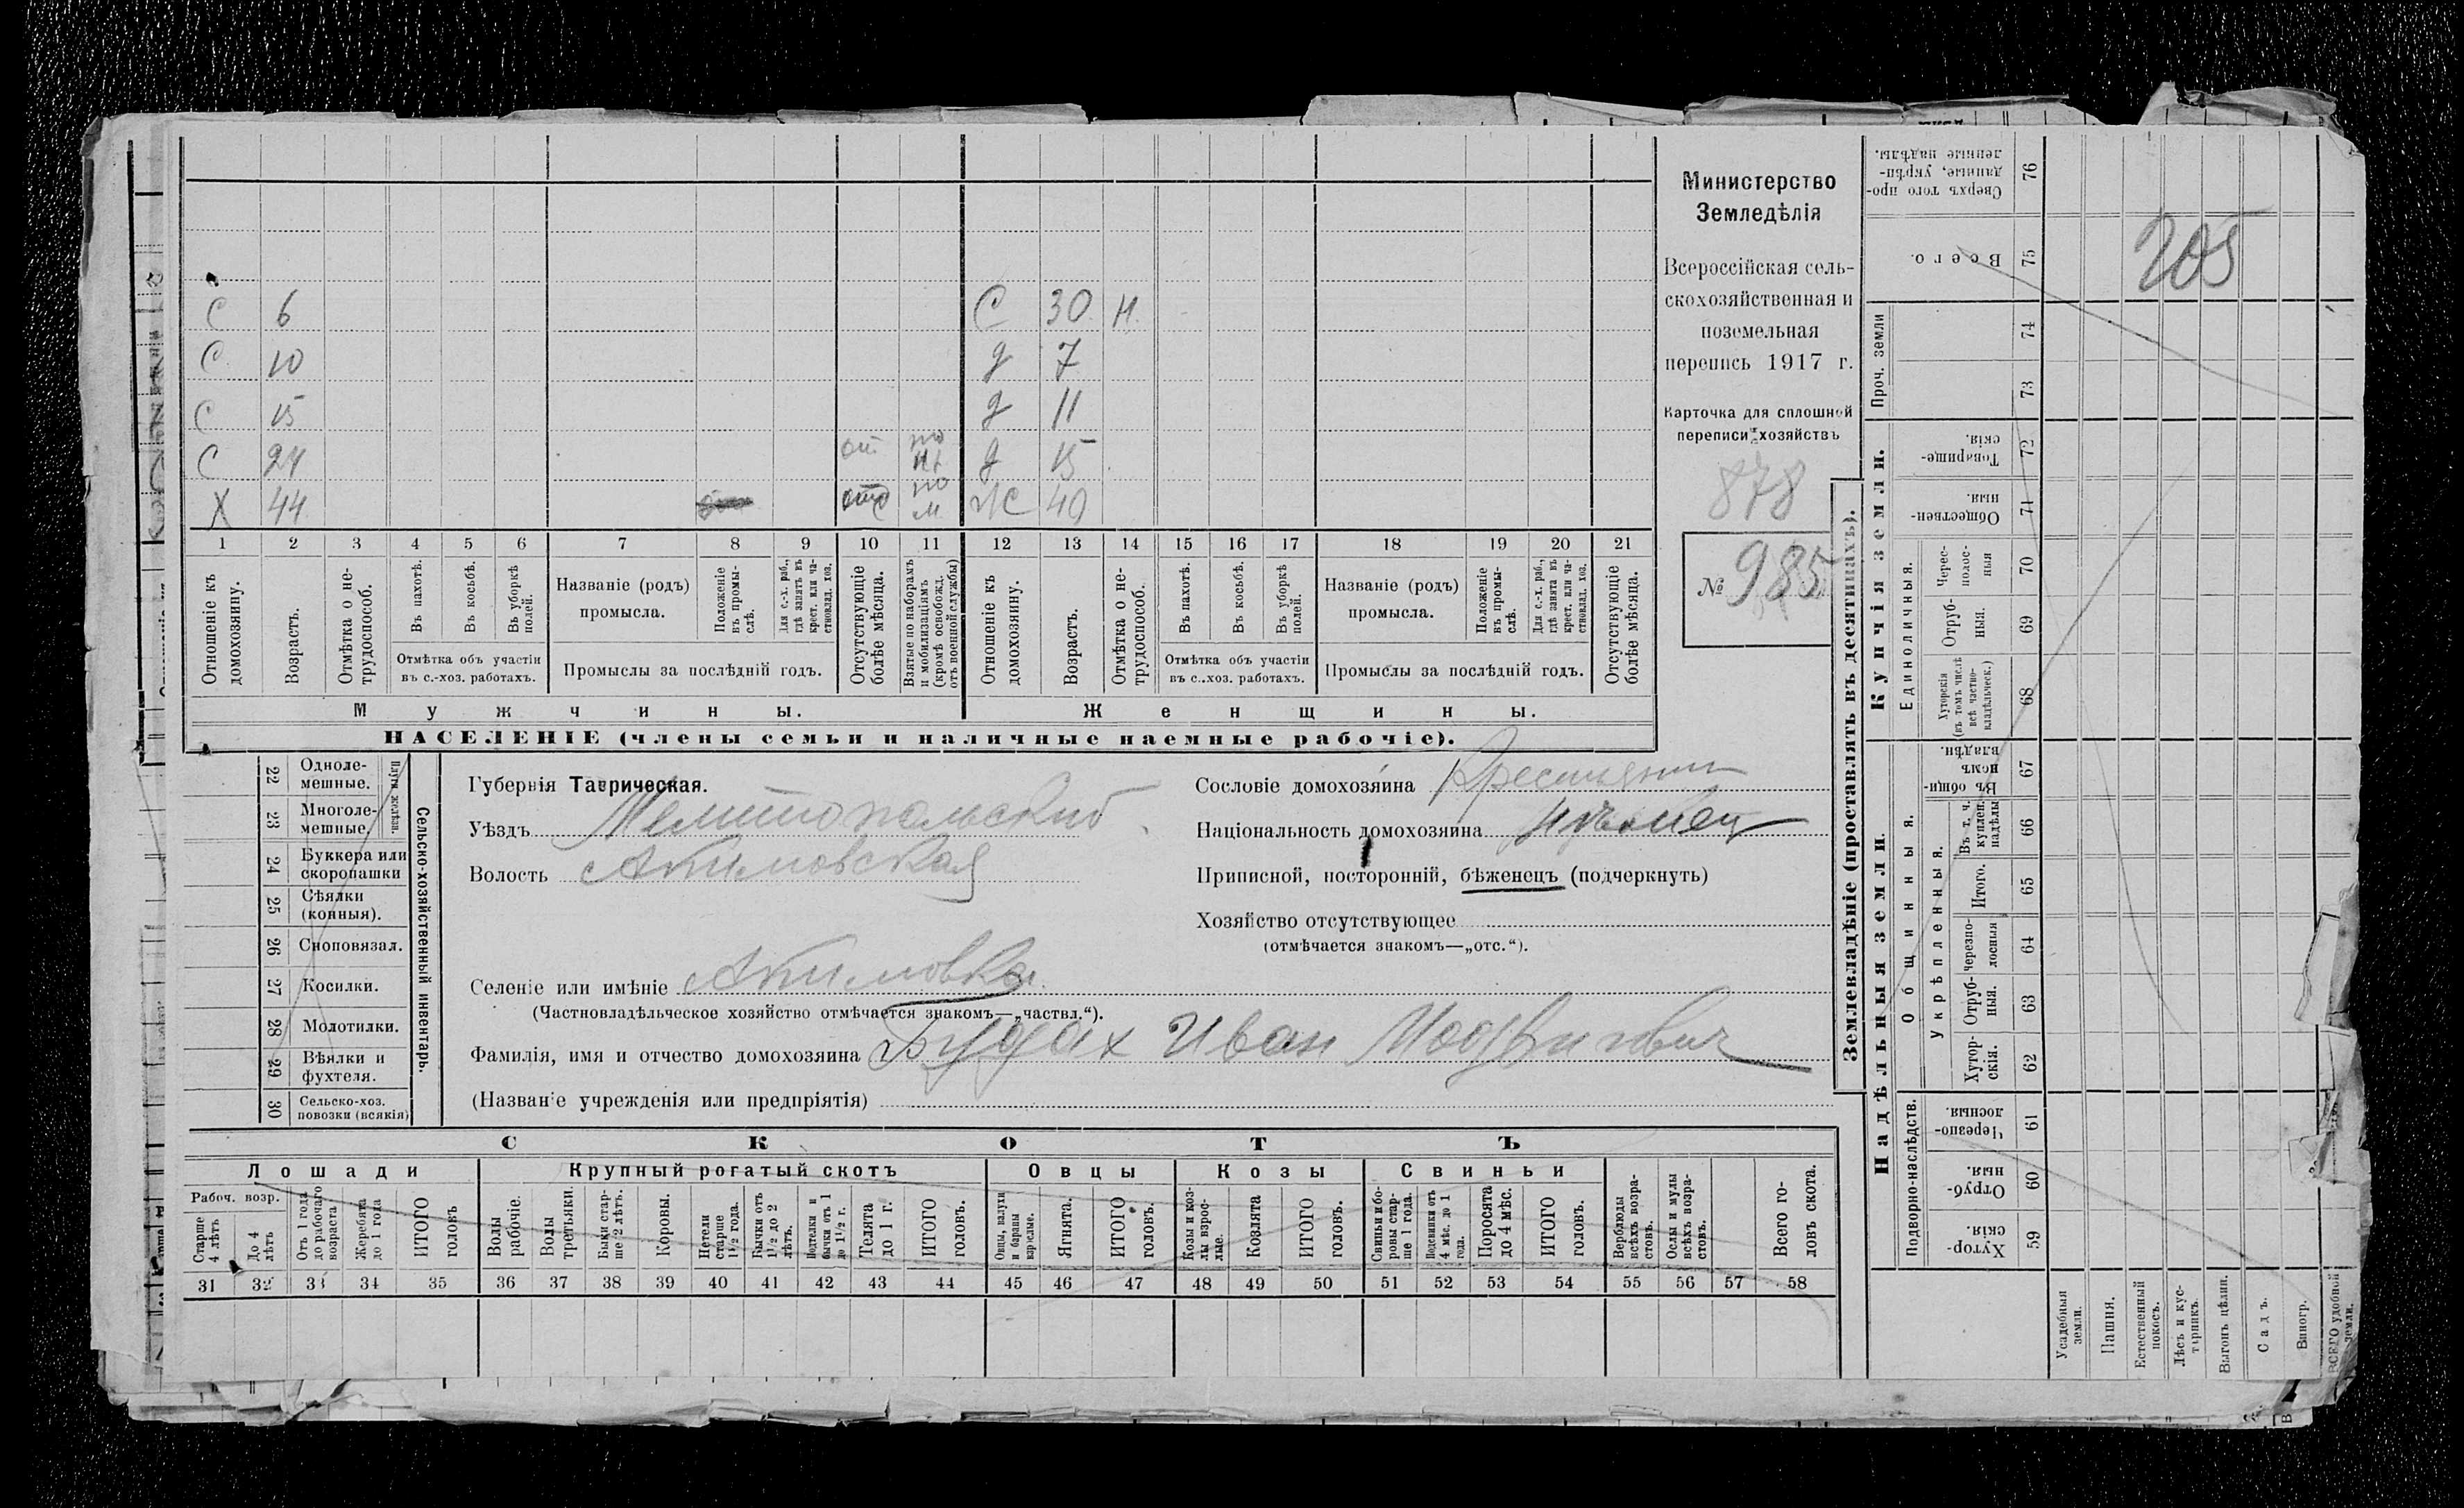 Министерство
Земледѣлія
Всероссійская сель-
скохозяйственная и
поземельная
перепись 1917 г.
Карточка для сплошной
переписи хозяйствъ
878
№ 985
С 6 С 30 Н
С 10 д 7
С 15 д 11
С 24 от по м д 15
Х 44 отс по м Ж 40
1 2 3 4 5 6 7 8 9 10 11 12 13 14 15 16 17 18 19 20 21
Отношеніе къ домохозяину.
Возрастъ.
Отмѣтка о не-трудоспособ.
Въ пахотѣ.
Въ косьбѣ.
Въ уборкѣ полей.
Отмѣтка объ участіи
въ с.-хоз. работахъ.
Названіе (родъ)
промысла.
Положеніе въ промы-слѣ.
Для с.-х. раб., гдѣ занятъ въ крест. или ча-стновлад. хоз.
Промыслы за послѣдній годъ.
Отсутствующіе болѣе мѣсяца.
Взятые по наборамъ и мобилизаціямъ (кромѣ освобожд. отъ военной службы)
Отношеніе къ домохозяину.
Возрастъ.
Отмѣтка о не-трудоспособ.
Въ пахотѣ.
Въ косьбѣ.
Въ уборкѣ полей.
Отмѣтка объ участіи
въ с.-хоз. работахъ.
Названіе (родъ)
промысла.
Положеніе въ промы-слѣ.
Для с.-х. раб., гдѣ занята въ крест. или ча-стновлад. хоз.
Промыслы за послѣдній годъ.
Отсутствующіе болѣе мѣсяца.
Мужчины. Женщины.
НАСЕЛЕНІЕ (члены семьи и наличные наемные рабочіе).
22 Одноле-мешные.
23 Многоле-мешные.
Плуги желѣзн.
24 Буккера или скоропашки
25 Сѣялки (конныя).
26 Сноповязал.
27 Косилки.
28 Молотилки.
29 Вѣялки и фухтеля.
30 Сельско-хоз. повозки (всякія)
Сельско-хозяйственный инвентарь.
Губернія Таврическая.
Уѣздъ Мелитопольский
Волость Акимовская
Селеніе или имѣніе Акимовка
(Частновладѣльческое хозяйство отмѣчается знакомъ—„частвл.“).
Фамилія, имя и отчество домохозяина Будах Иван Модвигович
(Названіе учрежденія или предпріятія)
Сословіе домохозяина Крестьянин
Національность домохозяина нѣмец
Приписной, посторонній, бѣженецъ (подчеркнуть)
Хозяйство отсутствующее
(отмѣчается знакомъ—„отс.“).
СКОТЪ
Лошади Крупный рогатый скотъ Овцы Козы Свиньи
Рабоч. возр.
Старше 4 лѣтъ
До 4 лѣтъ
Отъ 1 года до рабочаго возраста
Жеребята до 1 года
ИТОГО головъ
Волы рабочіе.
Волы третьяки.
Быки стар-ше 2 лѣтъ.
Коровы.
Нетели старше 1½ года.
Бычки отъ 1½ до 2 лѣтъ.
Подтелки и бычки отъ 1 до 1½ г.
Телята до 1 г.
ИТОГО головъ.
Овцы, валухи и бараны взрослые.
Ягнята.
ИТОГО головъ.
Козы и коз-лы взрос-лые.
Козлята
ИТОГО головъ.
Свиньи и бо-ровы стар-ше 1 года.
Подсвинки отъ 4 мѣс. до 1 года.
Поросята до 4 мѣс.
ИТОГО головъ.
Верблюды всѣхъ возра-стовъ.
Ослы и мулы всѣхъ возра-стовъ.
Всего го-ловъ скота.
31 32 33 34 35 36 37 38 39 40 41 42 43 44 45 46 47 48 49 50 51 52 53 54 55 56 57 58
Землевладѣніе (проставлять въ десятинахъ).
Купчія земли.
Надѣльныя земли.
Сверхъ того про-данные, укрѣп-ленные надѣлы. 76
Всего. 75
205
Проч. земли 74
73
Товарище-скія. 72
Обществен-ныя. 71
Единоличныя.
Черес-полос-ныя 70
Отруб-ныя. 69
Хуторскія (въ томъ числѣ всѣ частно-владѣльческ.) 68
Общинныя.
Въ общи-номъ владѣн. 67
Укрѣпленныя.
Въ т. ч. куплен. надѣлы 66
Итого. 65
Черезпо-лосныя 64
Отруб-ныя. 63
Хутор-скія. 62
Подворно-наслѣдств.
Черезпо-лосныя. 61
Отруб-ныя. 60
Хутор-скія. 59
Усадебныя земли.
Пашня.
Естественный покосъ.
Лѣсъ и кус-тарникъ.
Выгонъ цѣлин.
Садъ.
Виногр.
ВСЕГО удобной земли.